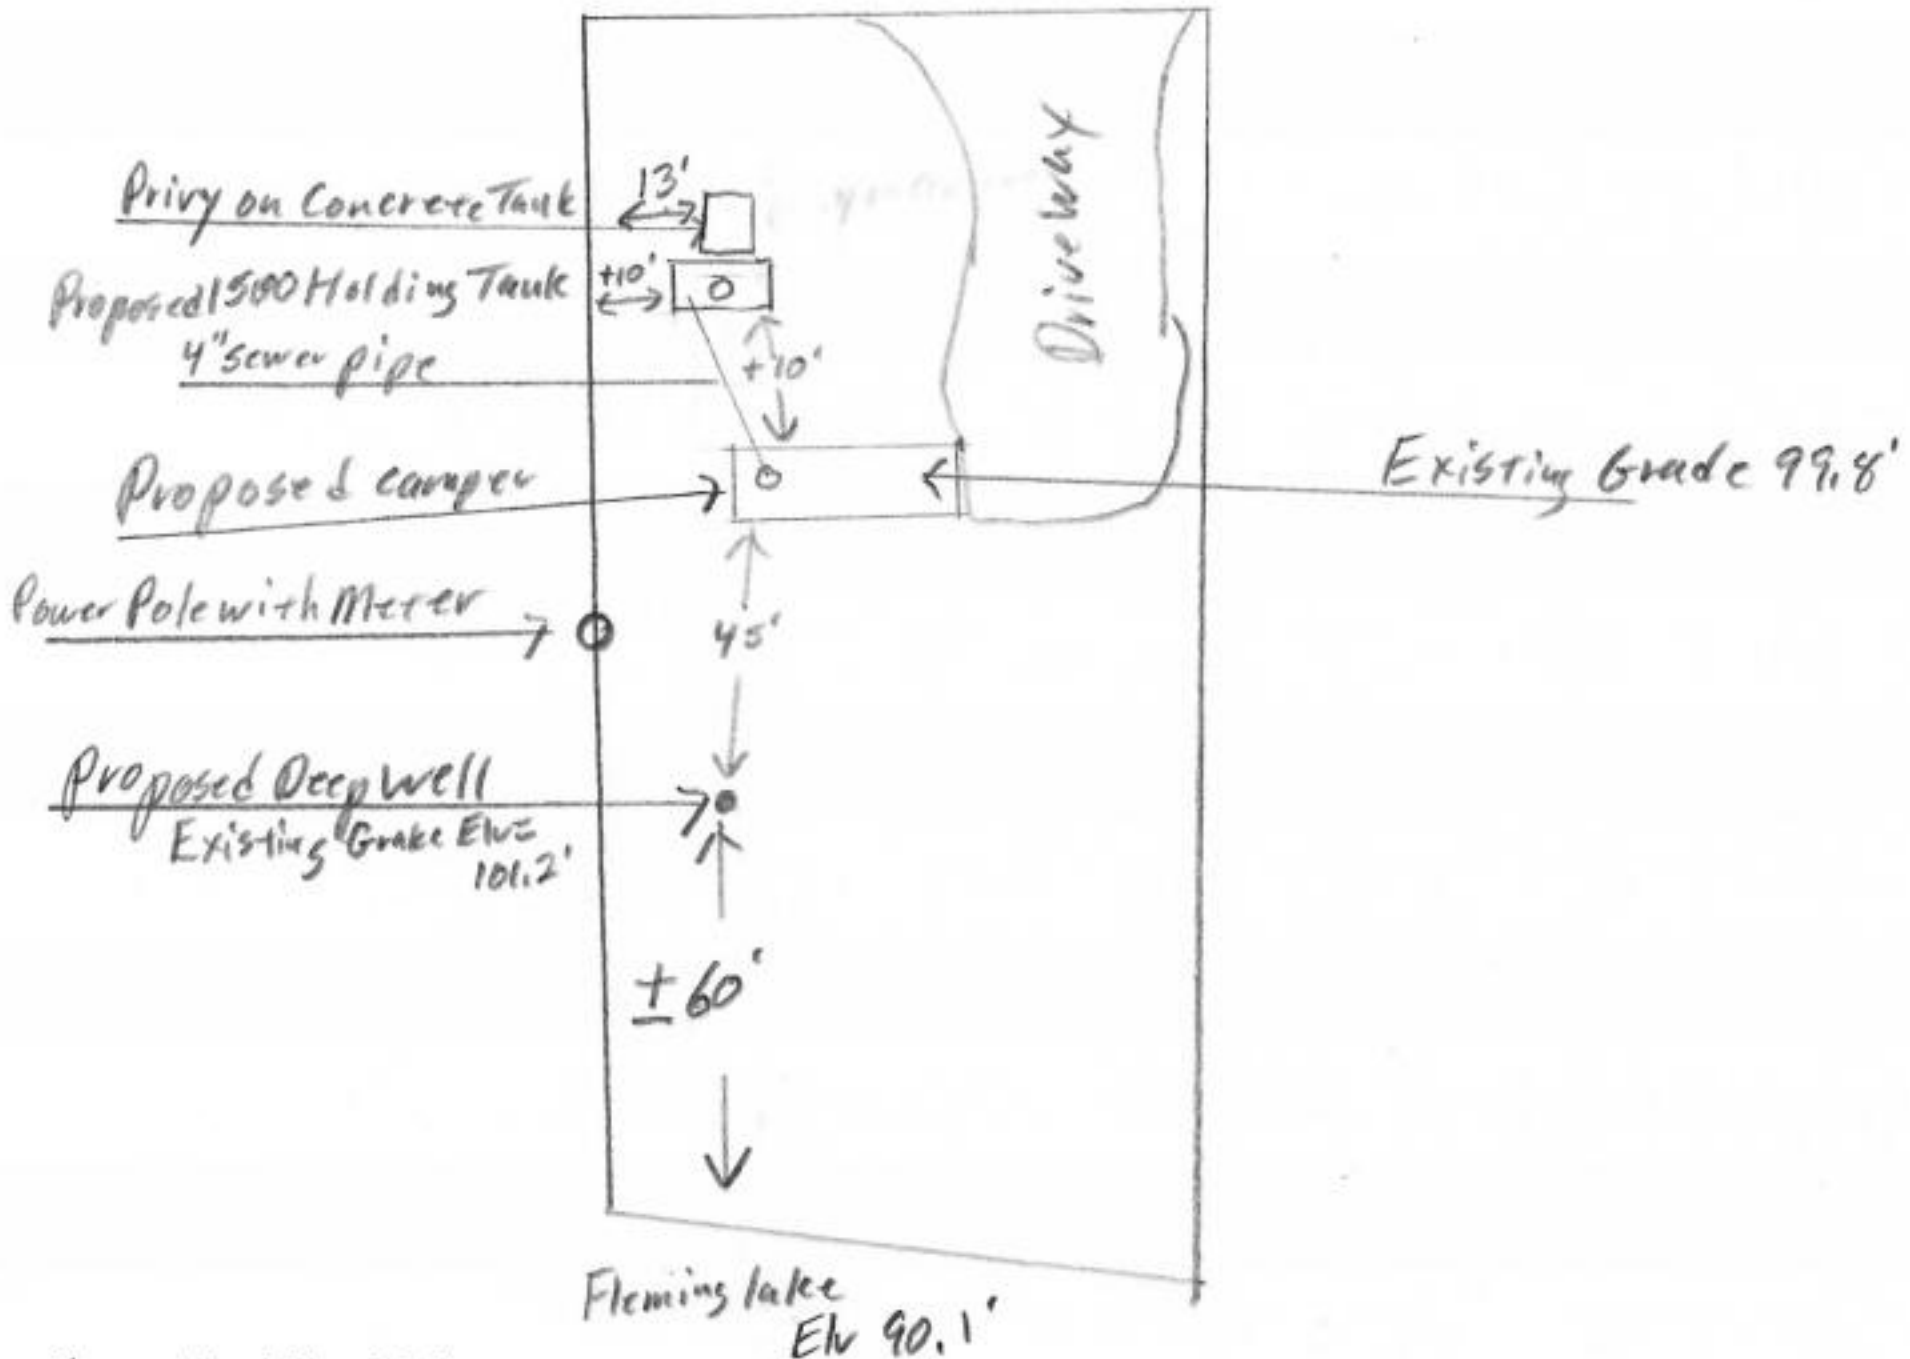 13'
Privy on Concrete Tank
+10'
Proposed 1500 Holding Tank
4" sewer pipe
+10'
Driveway
Proposed camper
Existing Grade 99.8'
Power Pole with Meter
45'
Proposed Deep Well
Existing Grake Elv=
101.2'
± 60'
Fleming lake
Elv 90.1'